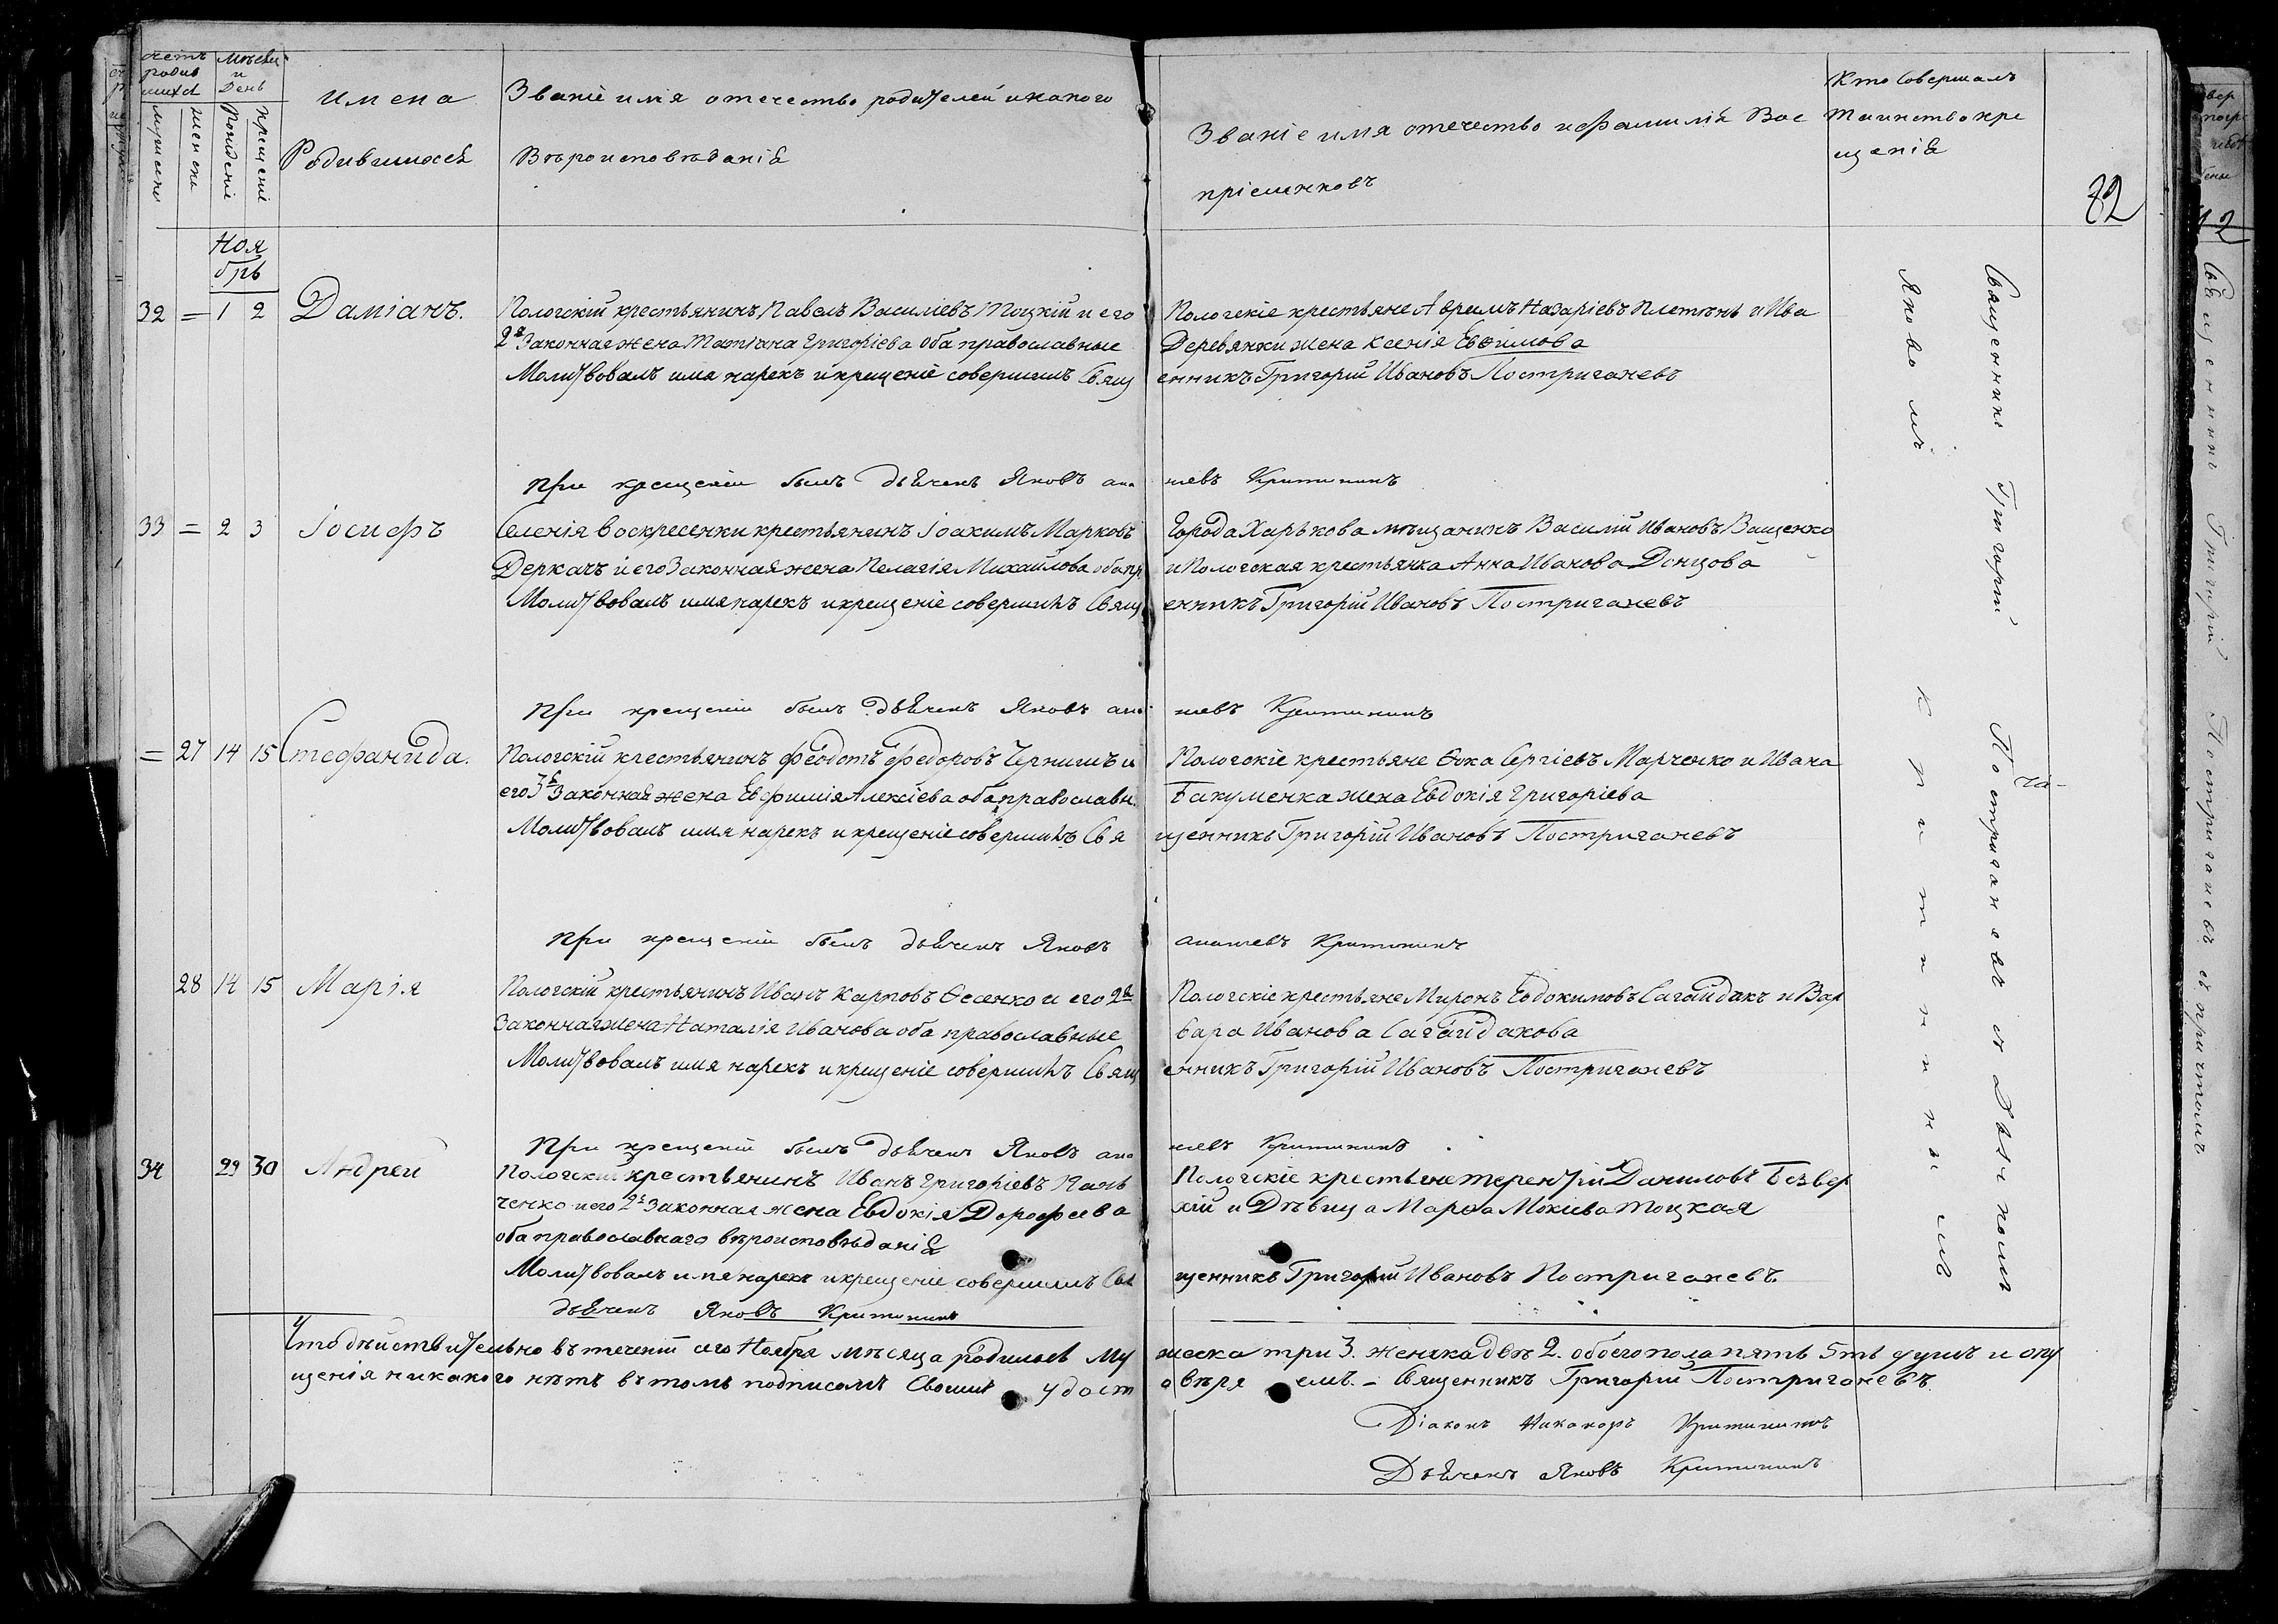 Счетъ родив шихся
Мѣсяц и День
Имена Родившихся
Званіе имя отечество родителей и какого
Вѣроисповѣданія
Званіе имя отечество и фамилія Вос
пріемниковъ
Кто Совершалъ
Таинство кре
щенія
мужеска
женска
Рожденія
крещенія
82
Ноя
брь
32 = 1 2 Даміанъ.
Пологскій крестьянинъ Павелъ Василіевъ Тоцкій и его
2я Законная жена Татіана Григоріева оба православные
Молитвовалъ имя нарекъ и крещеніе совершилъ Свящ
Пологскіе крестьяне Аврамъ Назаріевъ Плетѣнь и Ива
Деревянки жена Ксенія Евѳимова
енникъ Григорій Ивановъ Постриганевъ
При крещеніи былъ дьячекъ Яковъ ана
ніевъ Критининъ
33 = 2 3 Іосифъ
Селенія Воскресенки крестьянинъ Іоакимъ Марковъ
Деркачъ и его Законная жена Пелагія Михайлова оба пр.
Молитвовалъ имя нарекъ и крещеніе совершилъ Свящ
Города Харькова мѣщанинъ Василій Ивановъ Ващенко
и Пологская крестьянка Анна Иванова Донцова
енникъ Григорій Ивановъ Постриганевъ
При крещеніи былъ дьячекъ Яковъ ана
ніевъ Критининъ
= 27 14 15 Стефанида.
Пологскій крестьянинъ Феодотъ Федоровъ Чернишъ и
его 3я Законная жена Евфимія Алексіева оба православн.
Молитвовалъ имя нарекъ и крещеніе совершилъ Свя
Пологскіе крестьяне Ѳока Сергіевъ Марченко и Ивана
Бакуменка жена Евдокія Григоріева
щенникъ Григорій Ивановъ Постриганевъ
При крещеніи былъ дьячекъ Яковъ
ананіевъ Критининъ
28 14 15 Марія
Пологскій крестьянинъ Иванъ Карповъ Ѳесенко и его 2я
Законная жена Наталія Иванова оба православные
Молитвовалъ имя нарекъ и крещеніе совершилъ Свящ
Пологскіе крестьяне Миронъ Евдокимовъ Сагайдакъ и Вар
вара Иванова Сагайдакова
енникъ Григорій Ивановъ Постриганевъ
При крещеніи былъ дьячекъ Яковъ ана
ніевъ Критининъ
34 29 30 Андрей
Пологскій крестьянинъ Иванъ Григоріевъ Пань
ченко и его 2я Законная жена Евдокія Дорофеева
оба православнаго вѣроисповѣданія
Молитвовалъ имя нарекъ и крещеніе совершилъ Свя
дьячекъ Яковъ Критининъ
Пологскіе крестьяне Терентій Даниловъ Безвер
хій и Дѣвица Марѳа Мокіева Тоцкая
щенникъ Григорій Ивановъ Постриганевъ
Священникъ Григорій Постриганевъ съ Дьячкомъ
Яковомъ Критининымъ
Что дѣйствительно въ теченіи сего Ноября мѣсяца родилось Му
жеска три 3. женска двѣ 2. обоего пола пять 5ть душъ и опу
щенія никакого нѣтъ въ томъ подписомъ Своимъ удост
овѣряемъ. – Священникъ Григорій Постриганевъ
Діаконъ Никаноръ Критининъ
Дьячекъ Яковъ Критининъ
Священникъ Григорій Постриганевъ съ причтомъ